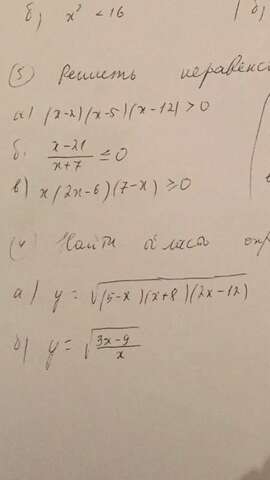 б) x² < 16
б)
(5) Решить неравенс
а) (x-2)(x-5)(x-12) > 0
б. x-21 / x+7 ≤ 0
в) x(2x-6)(7-x) ≥ 0
Найти опр
а) y = √(5-x)(x+8)(2x-12)
б) y = √3x-9 / x